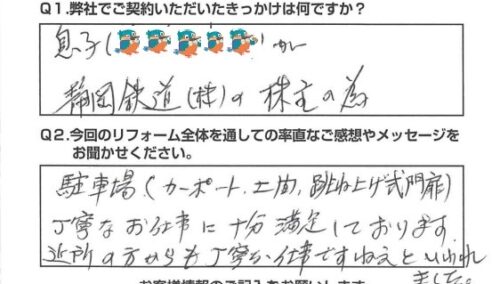 Q1.弊社でご契約いただいたきっかけは何ですか?
息子( )が
静岡鉄道(株)の株主の為
Q2.今回のリフォーム全体を通しての率直なご感想やメッセージを
お聞かせください。
駐車場(カーポート、土間、跳ね上げ式門扉)
丁寧なお仕事に十分満足しております
近所の方からも丁寧な仕事ですねえといわれ
ました。
お客様情報のご記入をお願いします